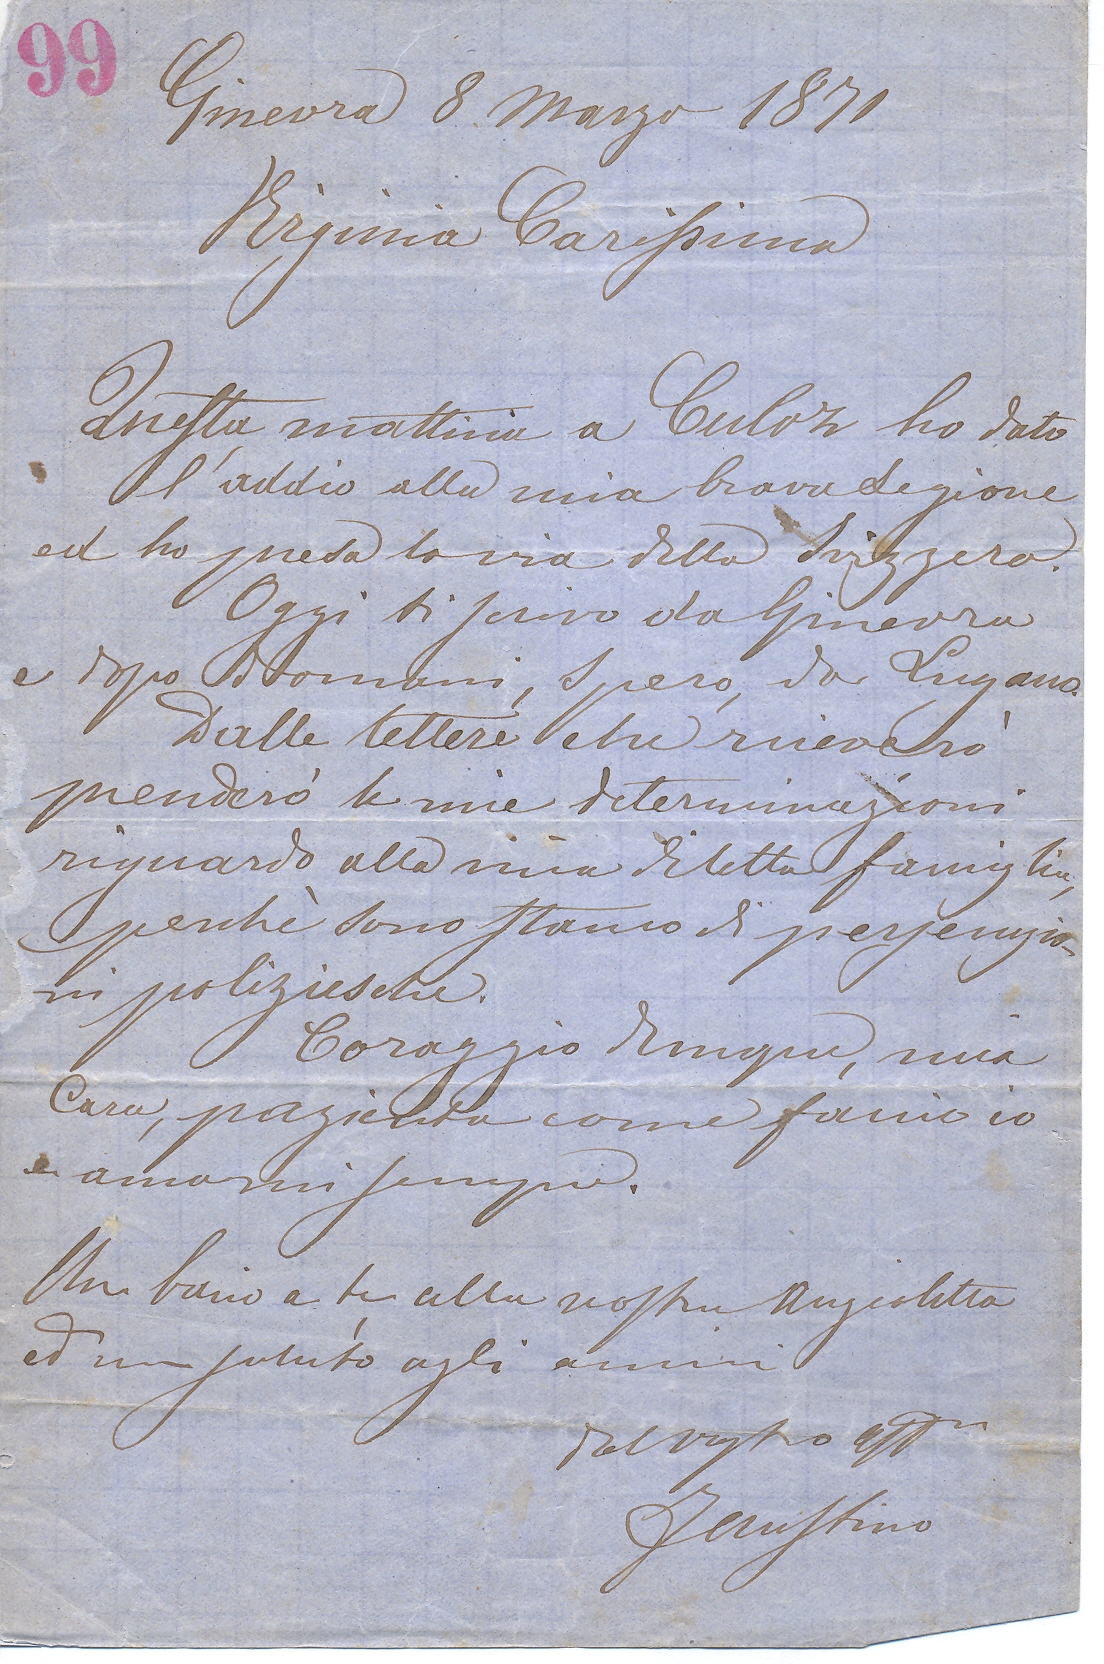 99
Ginevra 8 Marzo 1871
Virginia Carissima
Questa mattina a Culoz ho dato
l'addio alla mia brava Legione
ed ho presa la via della Svizzera.
Oggi ti scrivo da Ginevra
e dopo domani, spero, da Lugano.
Dalle lettere che riceverò
prenderò le mie determinazioni
riguardo alla mia diletta famiglia,
perchè sono stanco di persecuzio-
ni poliziesche.
Coraggio dunque, mia
Cara, pazienta come faccio io
e amami sempre.
Un bacio a te, alla nostra Angioletta
ed un saluto agli amici
dal vostro aff.mo
Faustino